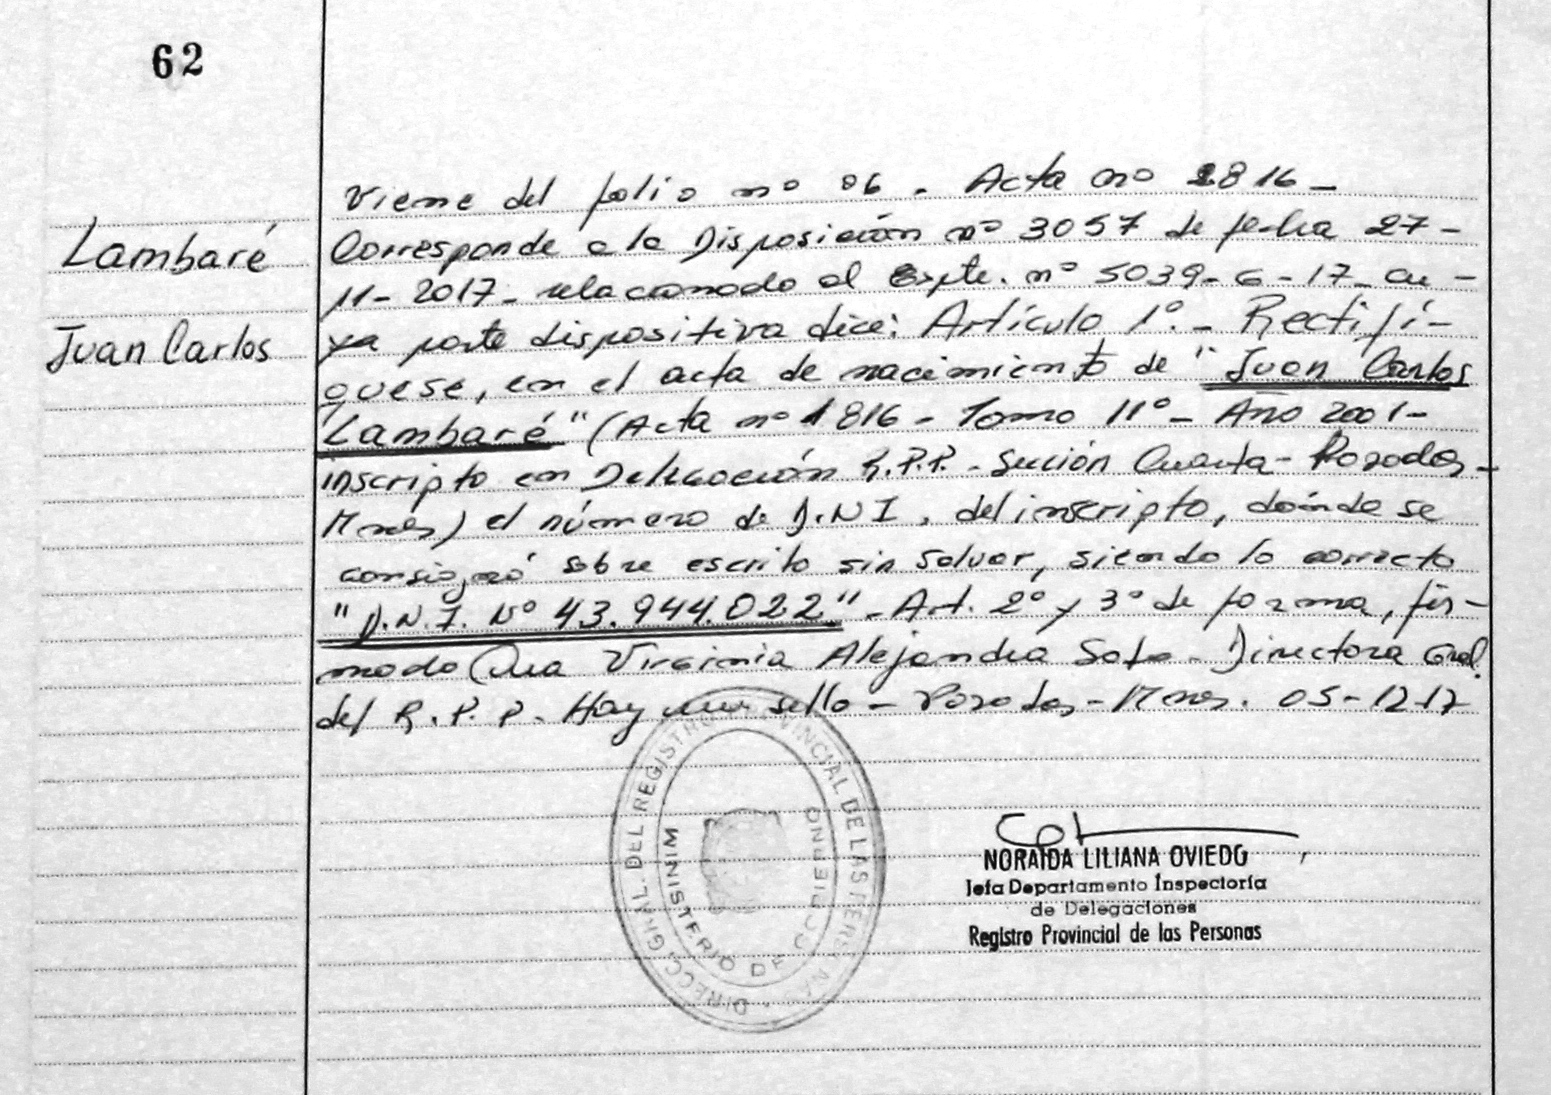 62
Lambaré
Juan Carlos
Viene del folio nº 06 - Acta nº 1816 -
Corresponde a la Disposición nº 3057 de fecha 27-
11-2017- relacionado al Expte. nº 5039-6-17- cu-
ya parte dispositiva dice: Artículo 1º.- Rectifí-
quese, en el acta de nacimiento de "Juan Carlos
Lambaré" (Acta nº 1816 - Tomo 11º - Año 2001-
inscripto en Delegación R.P.P. - Sección Cuarta - Posadas -
Mnes) el número de D.N.I. del inscripto, dónde se
consignó sobre escrito sin salvar, siendo lo correcto
"D.N.I. Nº 43.944.022" - Art. 2º y 3º de forma, fir-
mado Dra Virginia Alejandra Soto - Directora Gral.
del R.P.P. Hay un sello - Posadas - Mnes. 05-12-17
DIRECC. GRAL. DEL REGISTRO PROVINCIAL DE LAS PERSONAS
MINISTERIO DE GOBIERNO
NORAIDA LILIANA OVIEDO
Jefa Departamento Inspectoría
de Delegaciones
Registro Provincial de las Personas